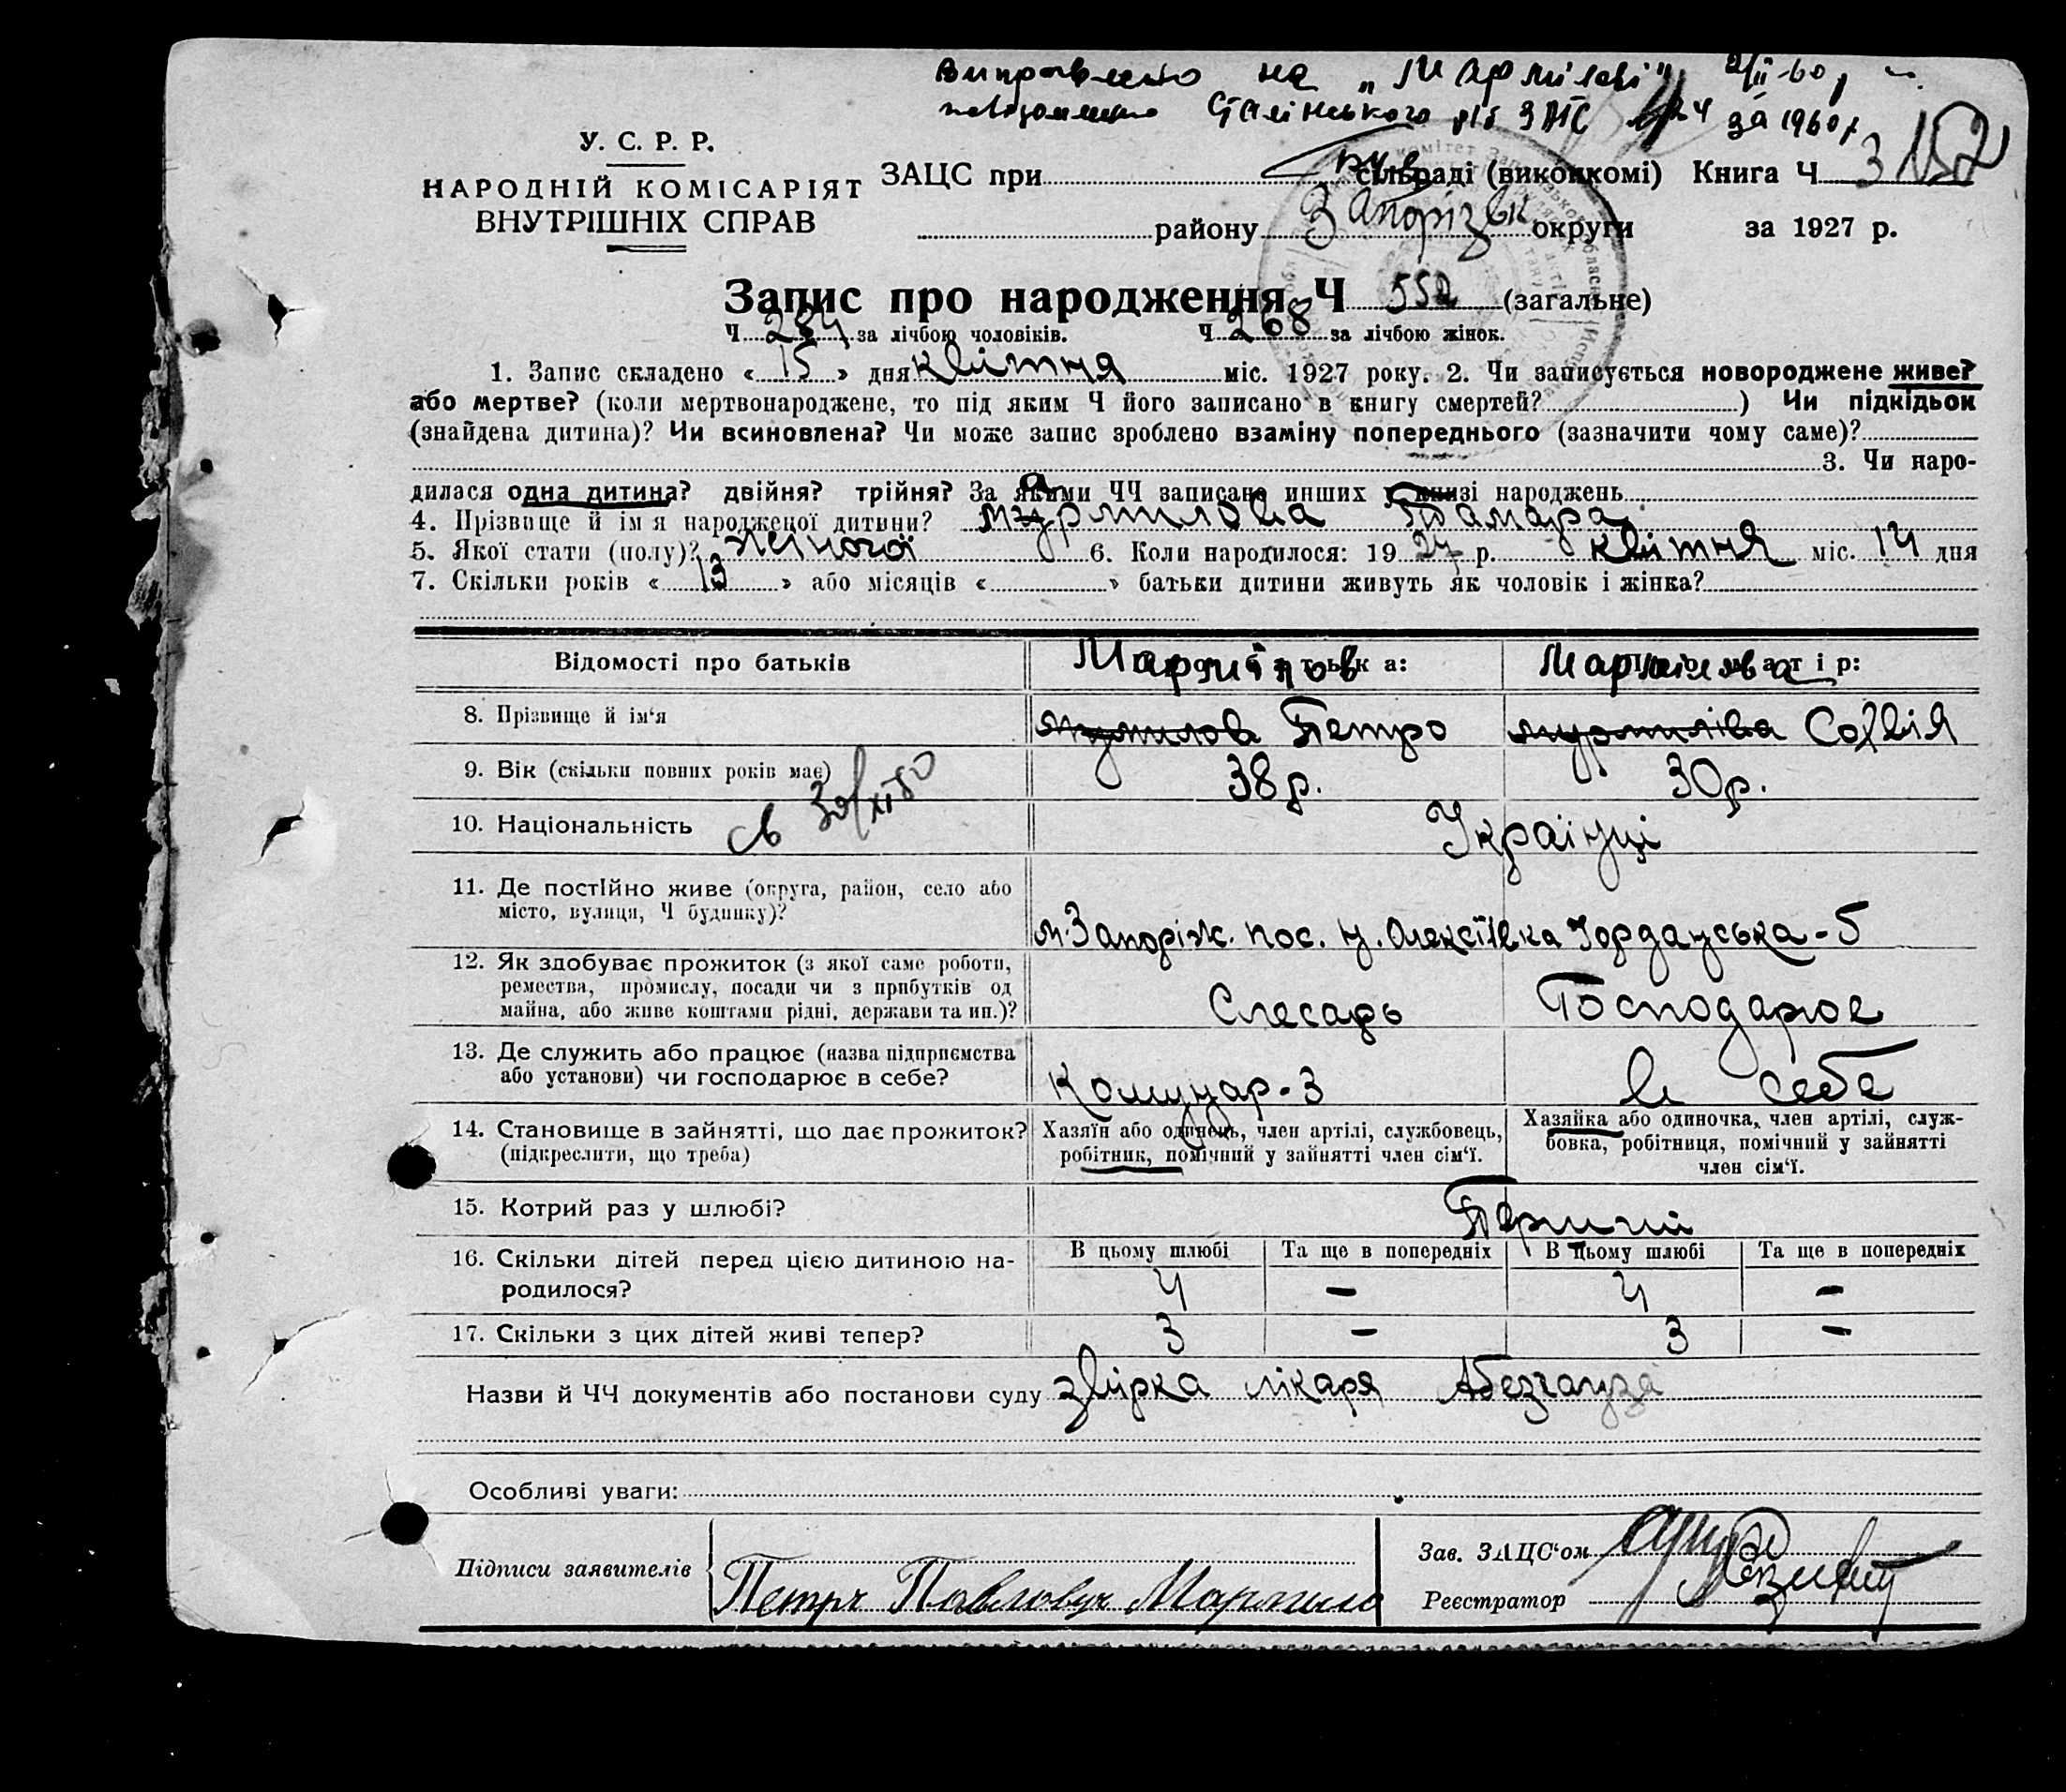 Виправлено на „Мармілові" 2/II-60 р
повідомлено Сталінського р/б ЗАГС за 1960 р
У. С. Р. Р.
НАРОДНІЙ КОМІСАРІЯТ
ВНУТРІШНІХ СПРАВ
ЗАЦС при сільраді (виконкомі) Книга Ч 3 152
району Запорізьк округи за 1927 р.
Запис про народження Ч 552 (загальне)
Ч 284 за лічбою чоловіків. Ч 268 за лічбою жінок.
1. Запис складено « 15 » дня квітня міс. 1927 року. 2. Чи записується новороджене живе?
або мертве? (коли мертвонароджене, то під яким Ч його записано в книгу смертей? ) Чи підкідьок
(знайдена дитина)? Чи всиновлена? Чи може запис зроблено взаміну попереднього (зазначити чому саме)?
3. Чи наро-
дилася одна дитина? двійня? трійня? За якими ЧЧ записано инших у книзі народжень
4. Прізвище й ім я народженої дитини? Мармилова Тамара
5. Якої стати (полу)? жіночої 6. Коли народилося: 19 27 р. квітня міс. 14 дня
7. Скільки років « 13 » або місяців « » батьки дитини живуть як чоловік і жінка?
Відомості про батьків Мармілов Про батька: Мармілова Про матір:
8. Прізвище й ім'я Петро Софія
9. Вік (скільки повних років має) 38 р. 30 р.
10. Національність Українці
11. Де постійно живе (округа, район, село або
місто, вулиця, Ч будинку)?
м. Запоріж. пос. н. Олексіївка Іорданська - 5
12. Як здобуває прожиток (з якої саме роботи,
ремества, промислу, посади чи з прибутків од
майна, або живе коштами рідні, держави та ин.)? Слесарь Господарює
13. Де служить або працює (назва підприємства
або установи) чи господарює в себе? Комунар-3 в себе
14. Становище в зайнятті, що дає прожиток?
(підкреслити, що треба)
Хазяїн або одинець, член артілі, службовець,
робітник, помічний у зайнятті член сім'ї.
Хазяйка або одиночка, член артілі, служ-
бовка, робітниця, помічний у зайнятті
член сім'ї.
15. Котрий раз у шлюбі? Перший
16. Скільки дітей перед цією дитиною на-
родилося?
В цьому шлюбі Та ще в попередніх В цьому шлюбі Та ще в попередніх
4 – 4 –
17. Скільки з цих дітей живі тепер? 3 – 3 –
Назви й ЧЧ документів або постанови суду звірка лікаря Абезгауза
Особливі уваги:
Підписи заявителів Петр Павлович Мармило
Зав. ЗАЦС'ом
Реєстратор